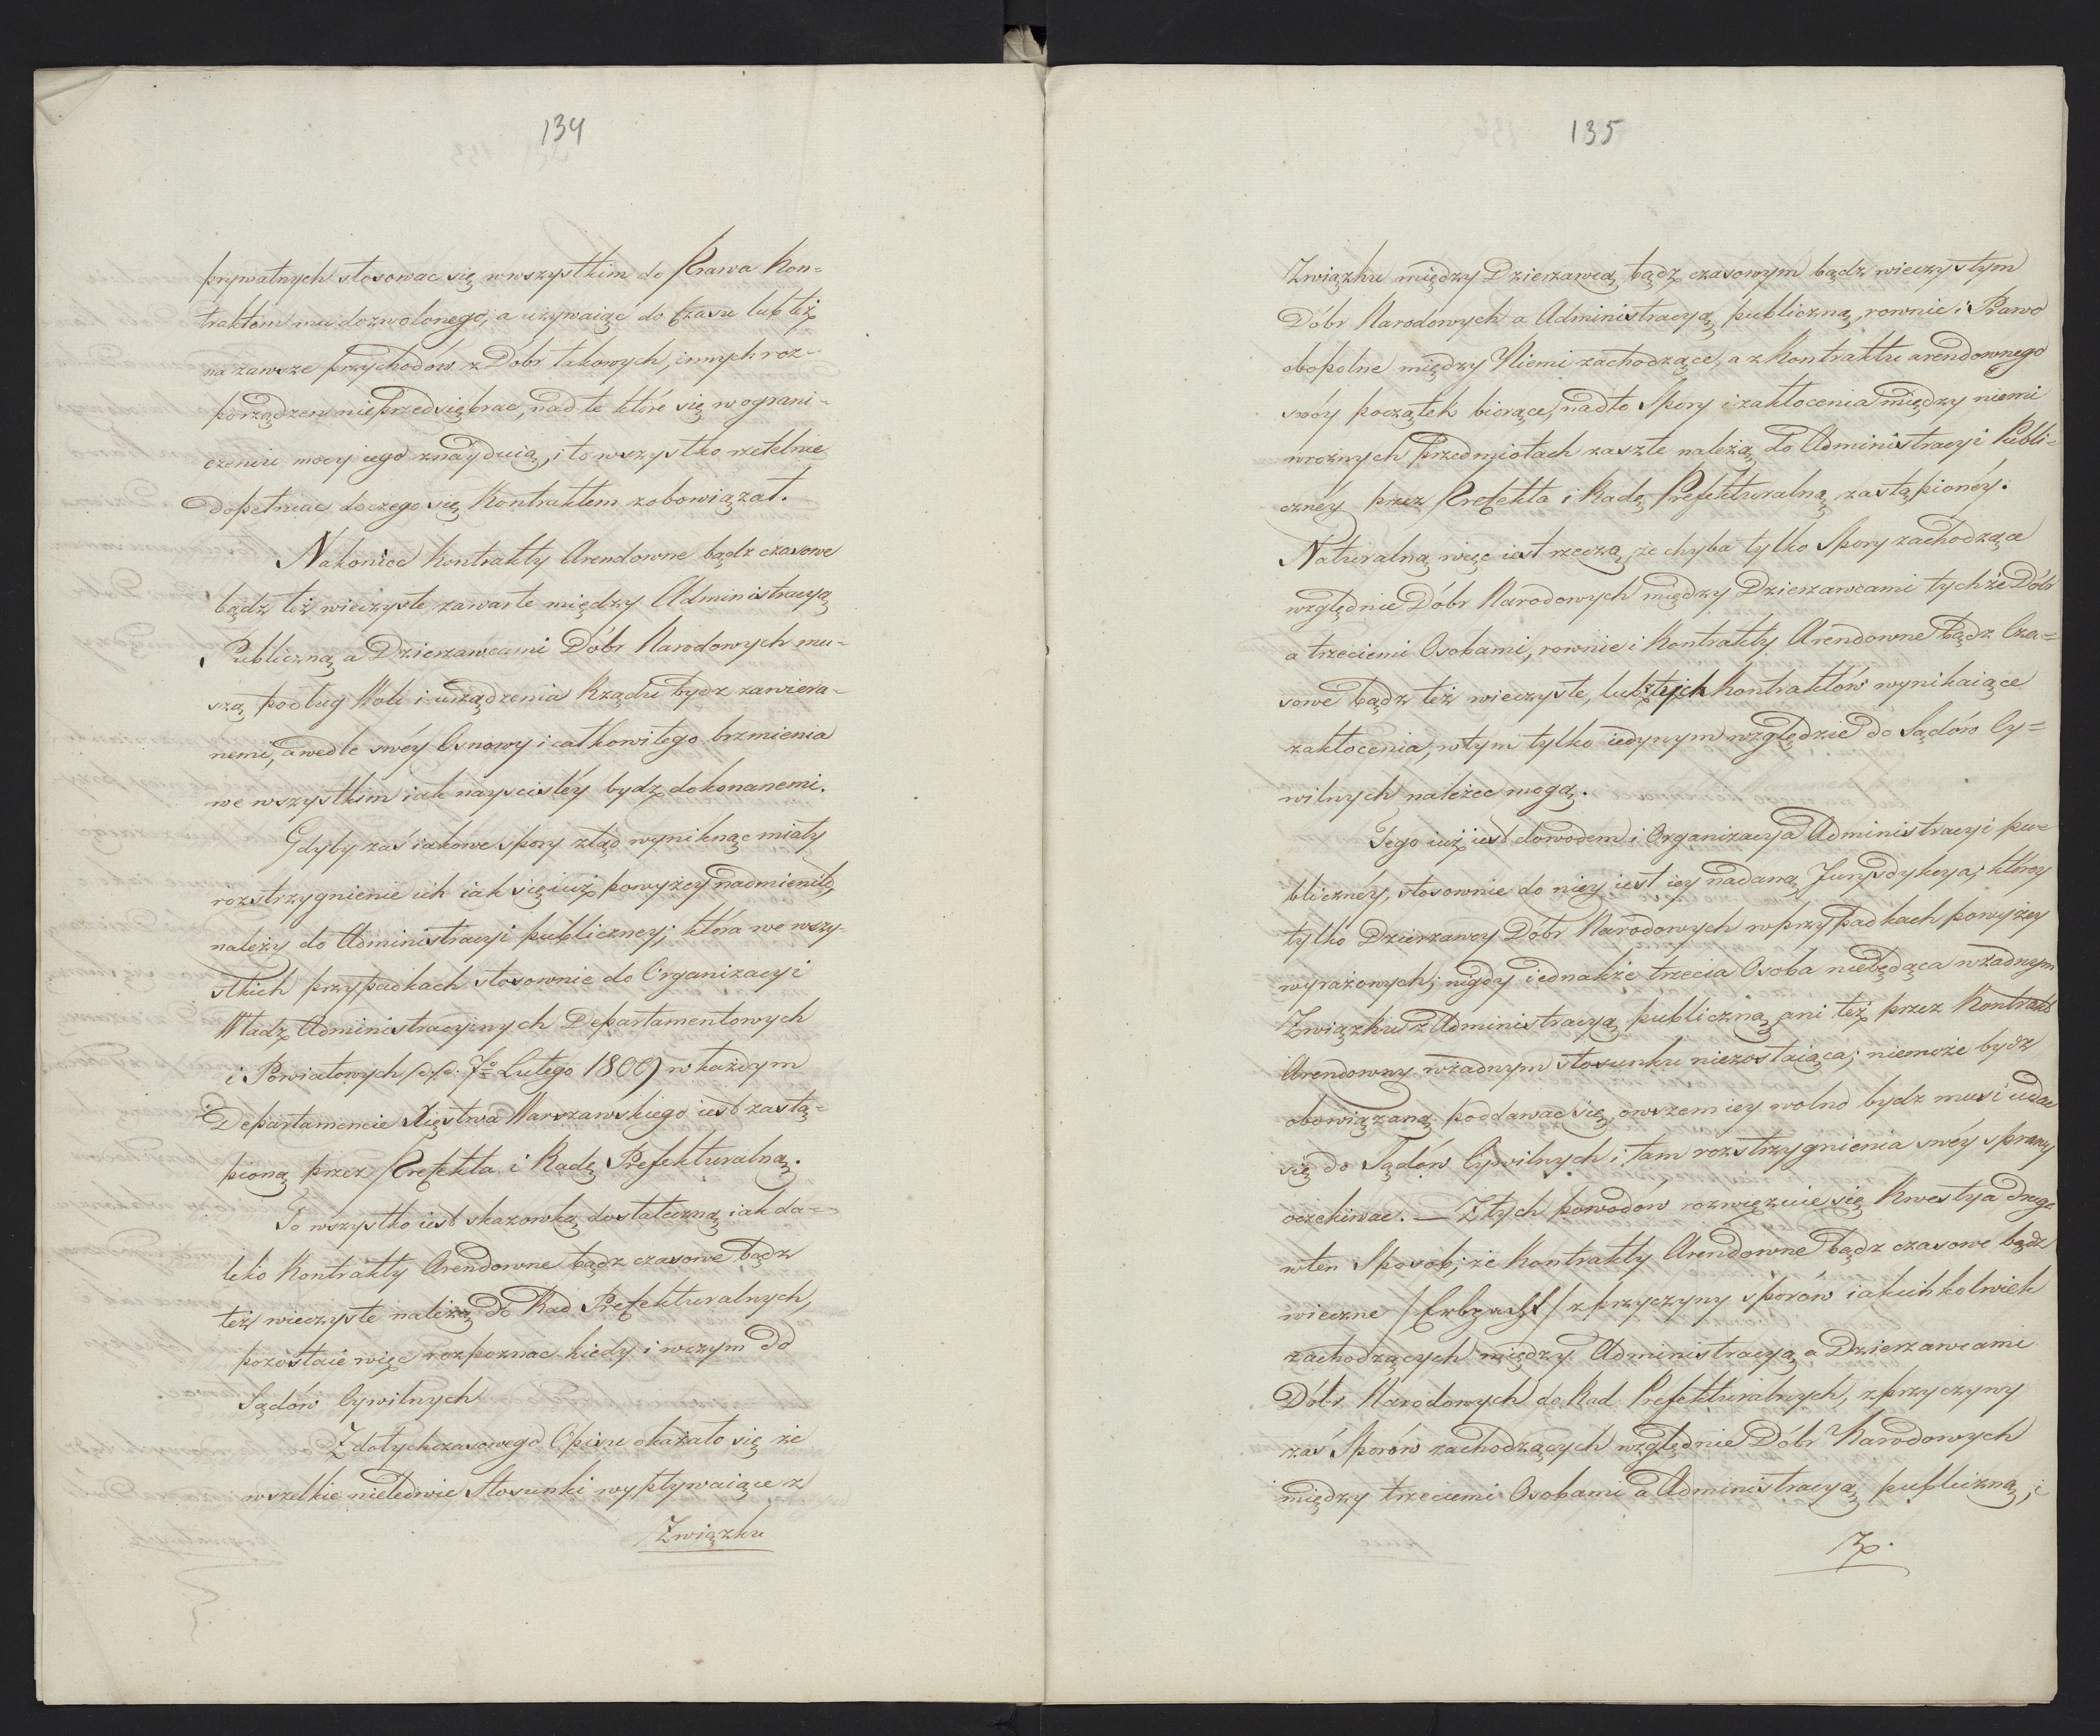 134
prywatnych stosowac się wewszystkim do Prawa Kon=
traktem mu dozwolonego, a używaiąc do czasu lub też
na zawsze przychodów z Dóbr takowych, innych roz=
porządzen nieprzedsiębrac, nad te które się w ograni=
czeniu mocy iego znayduią, i to wszystko rzetelnie
dopełniac do czego się Kontraktem zobowiązał.
Nakoniec Kontrakty Arendowne bądz czasowe
bądz też wieczyste zawarte między Administracyą
Publiczną a Dzierzawcami Dóbr Narodowych mu=
szą podług Woli i urządzenia Rządu bydz zawiera=
nemi, a wedle swéy Osnowy i całkowitego brzmienia
we wszystkim iak nayscisléy bydz dokonanemi.
Gdyby zaś iakowe spory ztąd wyniknąc miały
rozstrzygnienie ich iak się iuż powyżey nadmieniło,
należy do Administracyi publiczney; która we wszy=
stkich przypadkach stosownie do Organizacyi
Władz Administracyinych Departamentowych
i Powiatowych /d.d. 7o Lutego 1809) w każdym
Departamencie Xięstwa Warszawskiego iest zastą=
pioną przez Prefekta i Radę Prefekturalną.
To wszystko iest skazowką dostateczną iak da=
leko Kontrakty Arendowne bądz czasowe bądz
też wieczyste należą do Rad Prefekturalnych,
pozostaie więc rozpoznac kiedy i wczym do
Sądów Cywilnych
Z dotychczasowego Opisu okazało się że
wszelkie nieledwie Stosunki wypływaiące z
Związku
135
Związku między Dzierzawcą bądz czasowym bądz wieczystym
Dóbr Narodowych a Administracyą publiczną, rownie i Prawo
obopolne między Niemi zachodzące, a z Kontraktu arendownego
swóy początek biorące, nadto Spory i zakłocenia między niemi
wrożnych Przedmiotach zaszłe należą do Administracyi Publi=
cznéy przez Prefekta i Radę Prefekturalną zastąpionéy.
Naturalną więc iest rzeczą, że chyba tylko Spory zachodzące
względnie Dóbr Narodowych między Dzierzawcami tychże Dóbr
a trzeciemi Osobami, rownie i Kontrakty Arendowne bądz Cza=
sowe bądz też wieczyste, lub z tych Kontraktów wynikaiące
zakłocenia, wtym tylko iedynym względzie do Sądów Cy=
wilnych należec mogą.
Tego iuż iest dowodem i Organizacya Administracyi pu=
blicznéy, stosownie do niey iest iey nadaną Jurysdykcya; którey
tylko Dzierzawcy Dóbr Narodowych w przypadkach powyżey
wyrażonych; nigdy iednakże trzecia Osoba niebędąca w żadnym
Związku z Administracyą publiczną ani też przez Kontrakt
Arendowny wżadnym stosunku niezostaiąca; niemoże bydz
obowiązaną poddawac się, owszem iey wolno bydz musi udac
się do Sądów Cywilnych i tam rozstrzygnienia swéy sprawy
oczekiwac. — Z tych powodow rozwięzuie się Kwestya druga
wten Sposob; że Kontrakty Arendowne bądz czasowe bądz
wieczne /Erbpacht/ z przyczyny sporów iakichkolwiek
zachodzących między Administracyą a Dzierzawcami
Dóbr Narodowych do Rad Prefekturalnych, z przyczyny
zaś Sporów zachodzących względnie Dóbr Narodowych
między trzeciemi Osobami a Administracyą publiczną, i